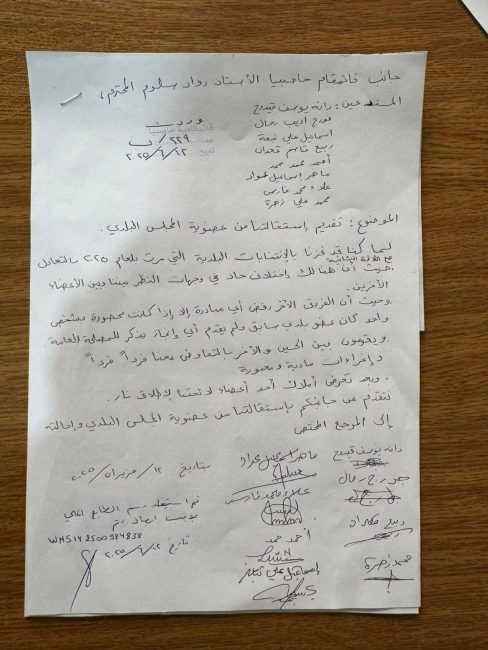 جانب قائمقام حاصبيا الأستاذ رواد سلوم المحترم،
المستدعين: دانه يوسف قيدوح
جورج اديب رحال
اسماعيل علي نبعة
ربيع قاسم قعدان
أحمد محمد حمد
ماهر إسماعيل
علاء محمد فارس
محمد علي زهرة
وردت
قائمقامية حاصبيا
عدد ٢٢٩/ب
تاريخ ٢٠٢٥/٦/١٢
الموضوع: تقديم إستقالتنا من عضوية المجلس البلدي.
لما كنا قد فزنا بالإنتخابات البلدية التي جرت بالعام ٢٠٢٥ بالتعادل
مع اللائحة الثانية
.حيث أن هنالك إختلاف حاد في وجهات النظر بيننا وبين الأعضاء
الآخرين.
وحيث أن الفريق الآخر رفض أي مبادرة إلا إذا كانت محصورة بشخص
واحد كان عضو بلدي سابق ولم يقدم أي إنجاز يذكر للمصلحة العامة.
.ويقومون بين الحين والآخر بالتفاوض معنا فرداً فرداً
وإغراءات مادية ومعنوية.
. وبعد تعرض أملاك أحد أعضاء لائحتنا لإطلاق نار.
نتقدم من جانبكم بإستقالتنا من عضوية المجلس البلدي وإحالته
إلى المرجع المختص
بتاريخ ١٢ حزيران ٢٠٢٥
دانه يوسف قيدوح
جورج رحال
ربيع قعدان
محمد زهرة
ماهر إسماعيل
علاء محمد فارس
أحمد حمد
إسماعيل علي نبعة
تم استيفاء رسم الطابع المالي
بموجب ايصال رقم
WHS1482500594838
تاريخ ٢٠٢٥/٦/١٢